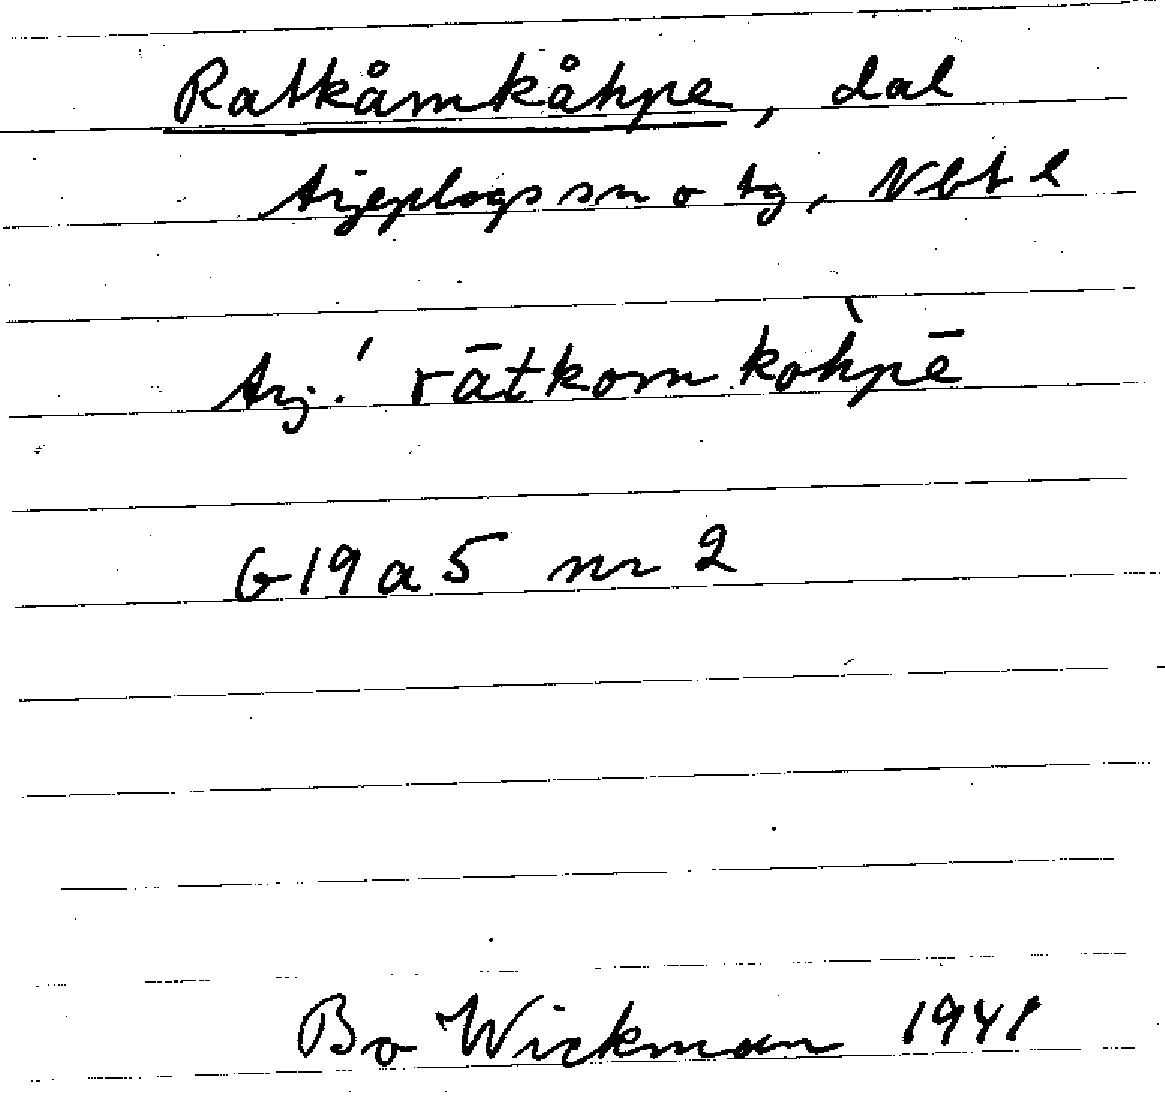 Ratkåmkåhpe, dal
Arjeplogs sn o tg, Nbt l
Arj. ˈrātkom koh̀pē
G 19 a 5 nr 2
Bo Wickman 1941